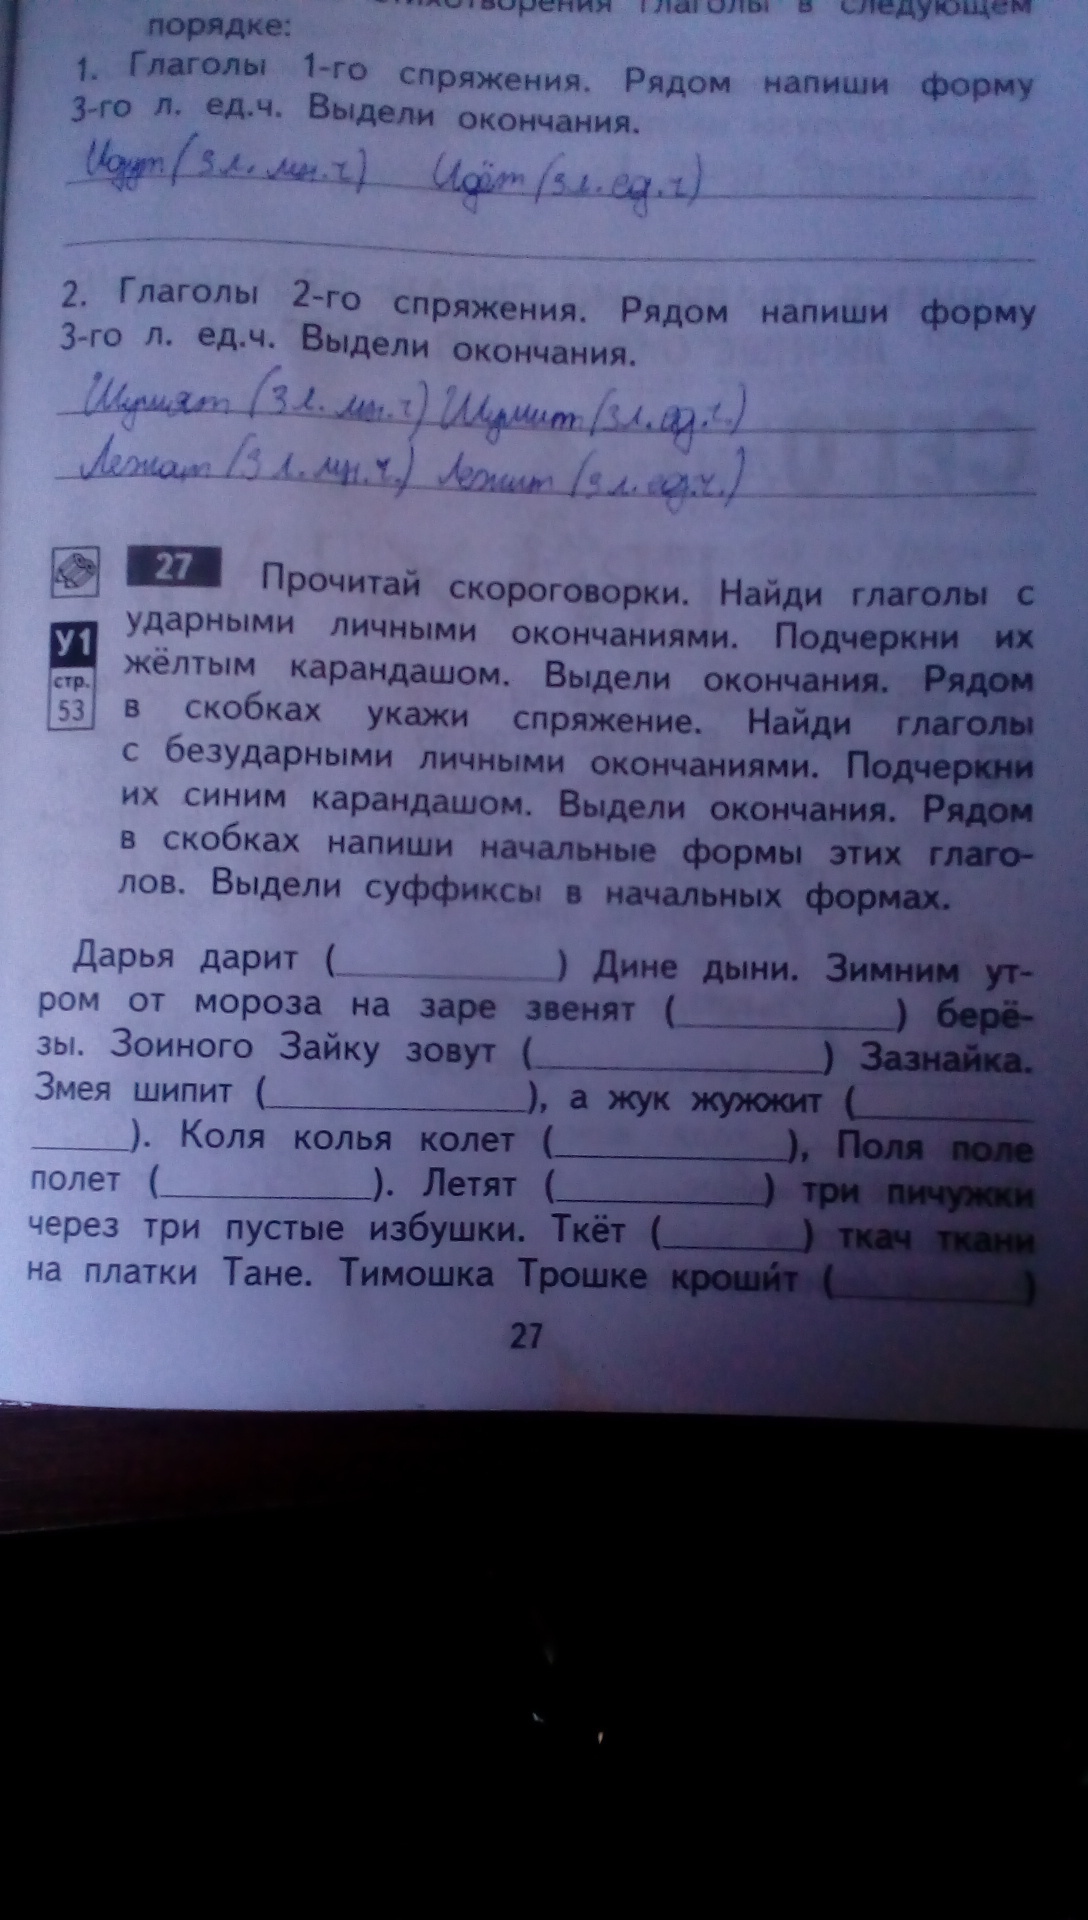 стихотворения глаголы в следующем
порядке:
1. Глаголы 1-го спряжения. Рядом напиши форму
3-го л. ед.ч. Выдели окончания.
Идут (3 л. мн.ч) Идёт (3 л. ед.ч)
2. Глаголы 2-го спряжения. Рядом напиши форму
3-го л. ед.ч. Выдели окончания.
Шумят (3 л. мн.ч) Шумит (3 л. ед.ч.)
Лежат (3 л. мн.ч.) Лежит (3 л. ед.ч.)
27 Прочитай скороговорки. Найди глаголы с
ударными личными окончаниями. Подчеркни их
У1
жёлтым карандашом. Выдели окончания. Рядом
стр.
53
в скобках укажи спряжение. Найди глаголы
с безударными личными окончаниями. Подчеркни
их синим карандашом. Выдели окончания. Рядом
в скобках напиши начальные формы этих глаго-
лов. Выдели суффиксы в начальных формах.
Дарья дарит (__________) Дине дыни. Зимним ут-
ром от мороза на заре звенят (__________) берё-
зы. Зоиного Зайку зовут (__________) Зазнайка.
Змея шипит (__________), а жук жужжит (________
_____). Коля колья колет (__________), Поля поле
полет (__________). Летят (__________) три пичужки
через три пустые избушки. Ткёт (_______) ткач ткани
на платки Тане. Тимошка Трошке кроши́т (_________)
27